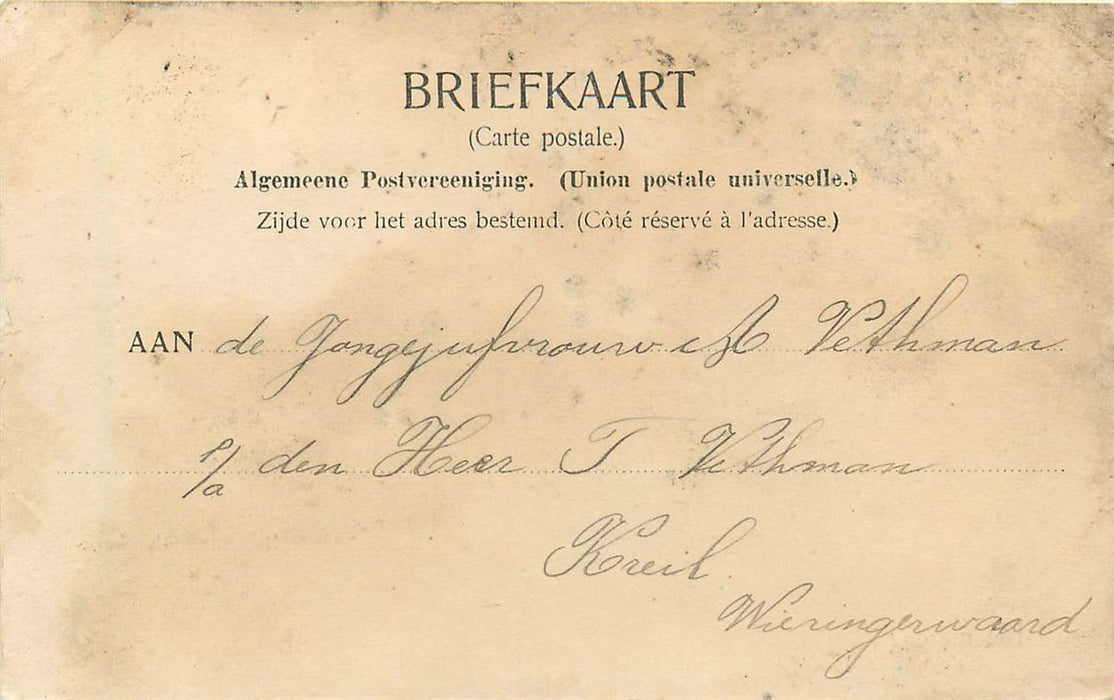 BRIEFKAART
(Carte postale.)
Algemeene Postvereeniging. (Union postale universelle.)
Zijde voor het adres bestemd. (Côté réservé à l'adresse.)
AAN de Jongejufvrouw A Vethman
P/a den Heer T Vethman
Kreil
Wieringerwaard